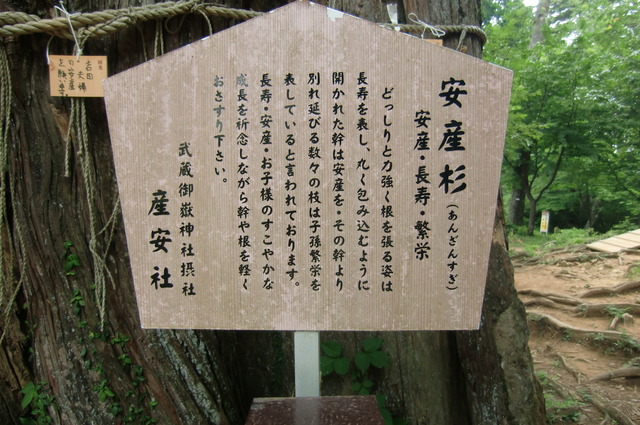 安産杉（あんざんすぎ）
安産・長寿・繁栄
どっしりと力強く根を張る姿は
長寿を表し、丸く包み込むように
開かれた幹は安産を・その幹より
別れ延びる数々の枝は子孫繁栄を
表していると言われております。
長寿・安産・お子様のすこやかな
成長を祈念しながら幹や根を軽く
おさすり下さい。
武蔵御嶽神社摂社
産安社
の安産
を願います